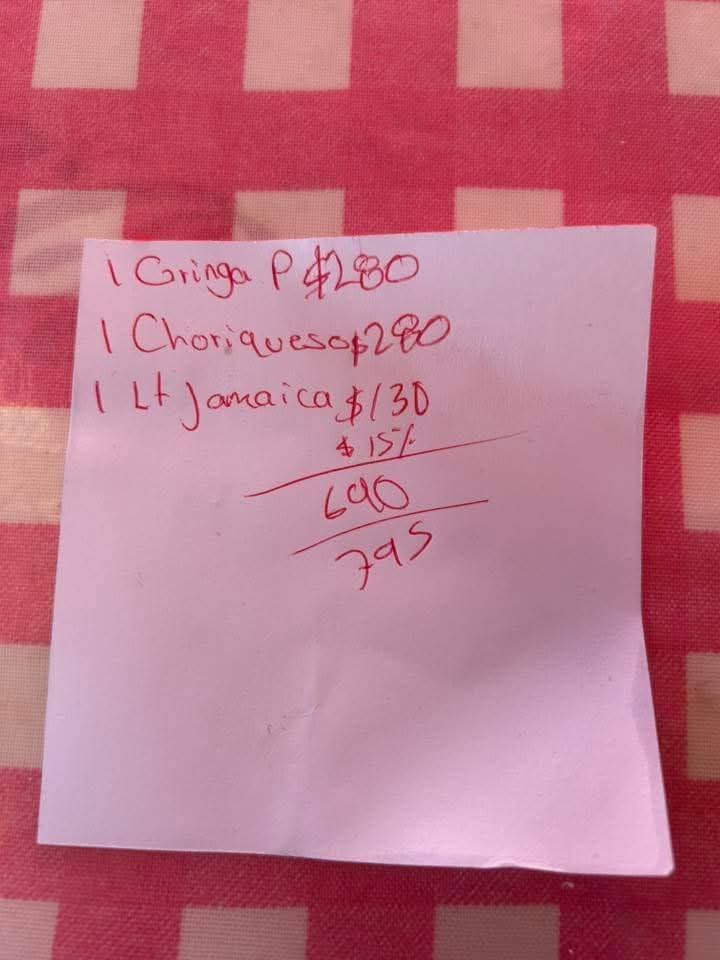 1 Gringa P $280
1 Choriqueso $280
1 Lt Jamaica $130
$ 15%
690
795